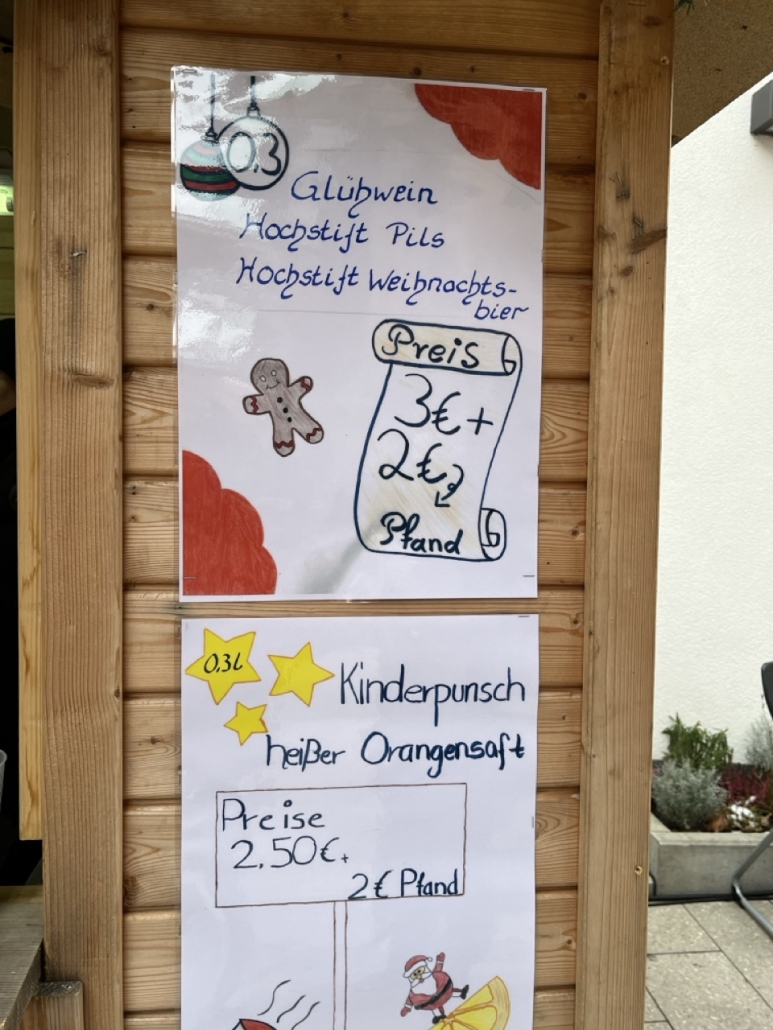 0.3
Glühwein
Hochstift Pils
Hochstift Weihnachts-
bier
Preis
3€ +
2€
Pfand
0,3l
Kinderpunsch
heißer Orangensaft
Preise
2,50€ +
2€ Pfand